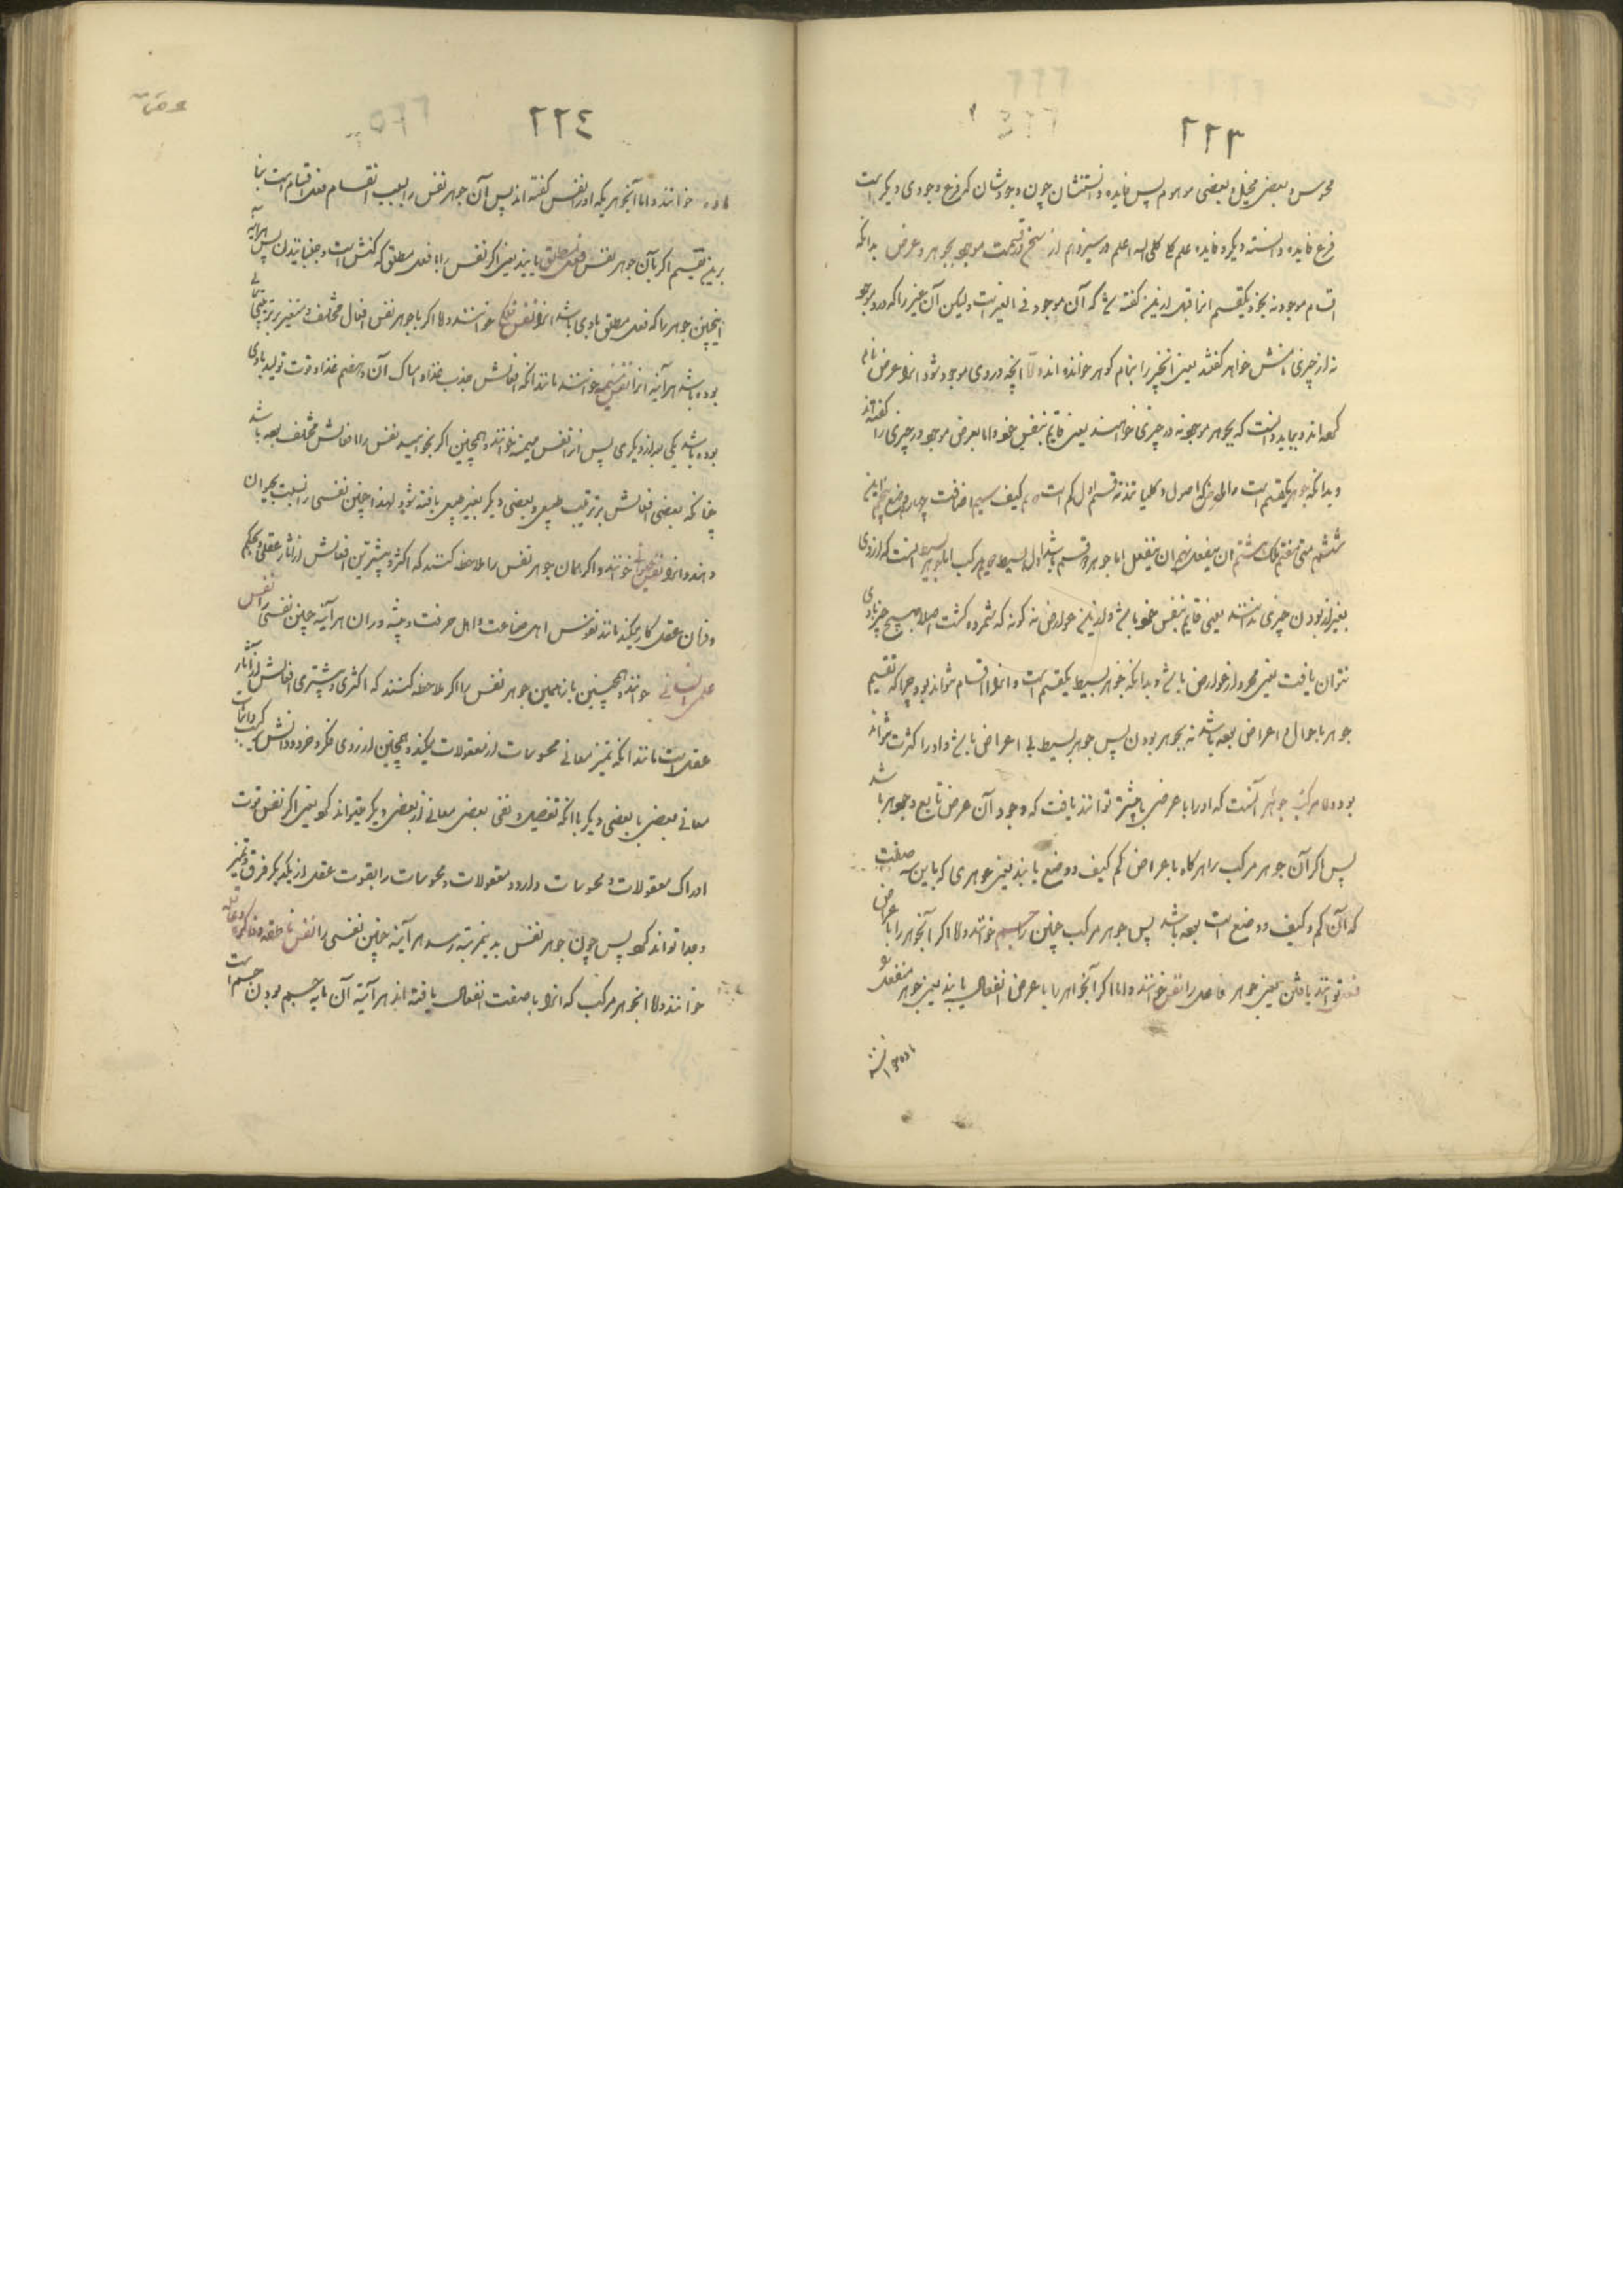 ٢٢٣
محسوس و بعضی مخیل و بعضی موهوم پس فایده دانستنشان چون وجودشان که فرع وجودی دیگر است
فرع فایده دانسته دیگر و فایده علم کل کلی اله اعلم در سیزدهم از سخن در قسمت موجود بجوهر و عرض بدانکه
اقسام موجود نه بخود یکقسم اند از قبل از این گفته شد که آن موجود فی الغیر است ولیکن آن غیر را که در او موجود
نه از چیزی دانش خواهر گفتند یعنی آنچیز را بنام گوهر خوانده اند و الا آنچه در وی موجود شود انرا عرض نام
کرده اند و بباید دانست که بجوهر موجود نه در چیزی خواهند یعنی قایم بنفس خود و اما بعرض موجود در چیزی را گفته اند
و بدانکه جوهر یکقسم است و اما عرض که اصول و کلیاتند نه قسم اول کم است دویم کیف سیم اضافت چهارم وضع پنجم این
ششم متی هفتم ملک هشتم ان یفعل نهم ان ینفعل اما جوهر دو قسم باشد اول بسیط دویم مرکب اما جوهر بسیط انست که از وی
بغیر از بودن چیزی ندانند یعنی قایم بنفس خود باشد و از این عوارض نه گونه که شمرده گشت اصلا هیچ چیز با وی
نتوان یافت یعنی مجرد از عوارض باشد و بدانکه جوهر بسیط یکقسم است و انرا اقسام نتواند بود چرا که تقسیم
جوهر باحوال و اعراض بوده باشد نه بجوهر بودن پس جوهر بسیط بی اعراض باشد و او را کثرت نتواند
بود و اما مرکب جوهر آنست که او را با عرضی یا بیشتر توانند یافت که وجود آن عرض تابع وجوهر باشد
پس اگر آن جوهر مرکب را هر گاه با عراض کم کیف و وضع یابند یعنی جوهری که باین سه صفت
که آن کم و کیف و وضع است بوده باشد پس جوهر مرکب چنین را جسم خوانند و الا اگر آنجوهر را با عراض
فعل توانند یافتن یعنی جوهر فاعل را نفس خوانند و اما اگر آنجوهر را با عرض انفعال یابند یعنی جوهر منفعل
ماده خوانند
٢٢٤
ماده خوانند و اما آنجوهریکه او را نفس گفته اند پس آن جوهر نفس را بسبب انقسام فعل اقسام است بنا
برین تقسیم اگر با آن جوهر نفس فعل مطلق یابند یعنی اگر نفس را با فعل مطلق که کنش است و جنبانیدن پس هرآینه
اینچنین جوهر را که فعل مطلق با وی باشد انرا نفس خوانند و الا اگر با جوهر نفس افعال مختلف و متغیر بر ترتیبی
بوده باشد هرآینه انرا نفس خوانند مانند آنکه افعالش جذب غذا و امساک آن و هضم غذا و قوت تولید با وی
بوده باشد یکی بعد از دیگری پس انرا نفس خوانند و همچنین اگر بخواهید نفس را با افعالش مختلف بوده باشد
چنانکه بعضی افعالش بر ترتیب طبیعی و بعضی دیگر بغیر طبیعی یافته شود لهذا چنین نفسی را نسبت بحیوان
دهند و انرا نفس خوانند و اگر همان جوهر نفس را ملاحظه کنند که اکثر و بیشترین افعالش از آثار عقلی و بحکم
و فرمان عقل کار میکند مانند نفوس اهل صناعت و اهل حرفت و پیشه وران هرآینه چنین نفسی را نفس
خوانند و همچنین باز همین جوهر نفس را اگر ملاحظه کنند که اکثری و بیشتری افعالش از آثار
عقل است مانند آنکه تمیز معانی محسوسات از معقولات میکند و همچنین از روی فکر و خرد و دانش
معانی بعضی با بعضی دیگر با آنکه تفصیل و نفی بعضی معانی از بعضی دیگر میتواند کرد یعنی اگر نفس قوت
ادراک معقولات و محسوسات دارد و معقولات و محسوسات را بقوت عقل از یکدیگر فرق و تمیز
و جدا تواند کرد پس چون جوهر نفس بدینمرتبه رسد هرآینه چنین نفسی را نفس ناطقه
خوانند و اما آنجوهر مرکب که انرا با صفت انفعال یافته اند هرآینه آن مایه جسم بودن جسم است